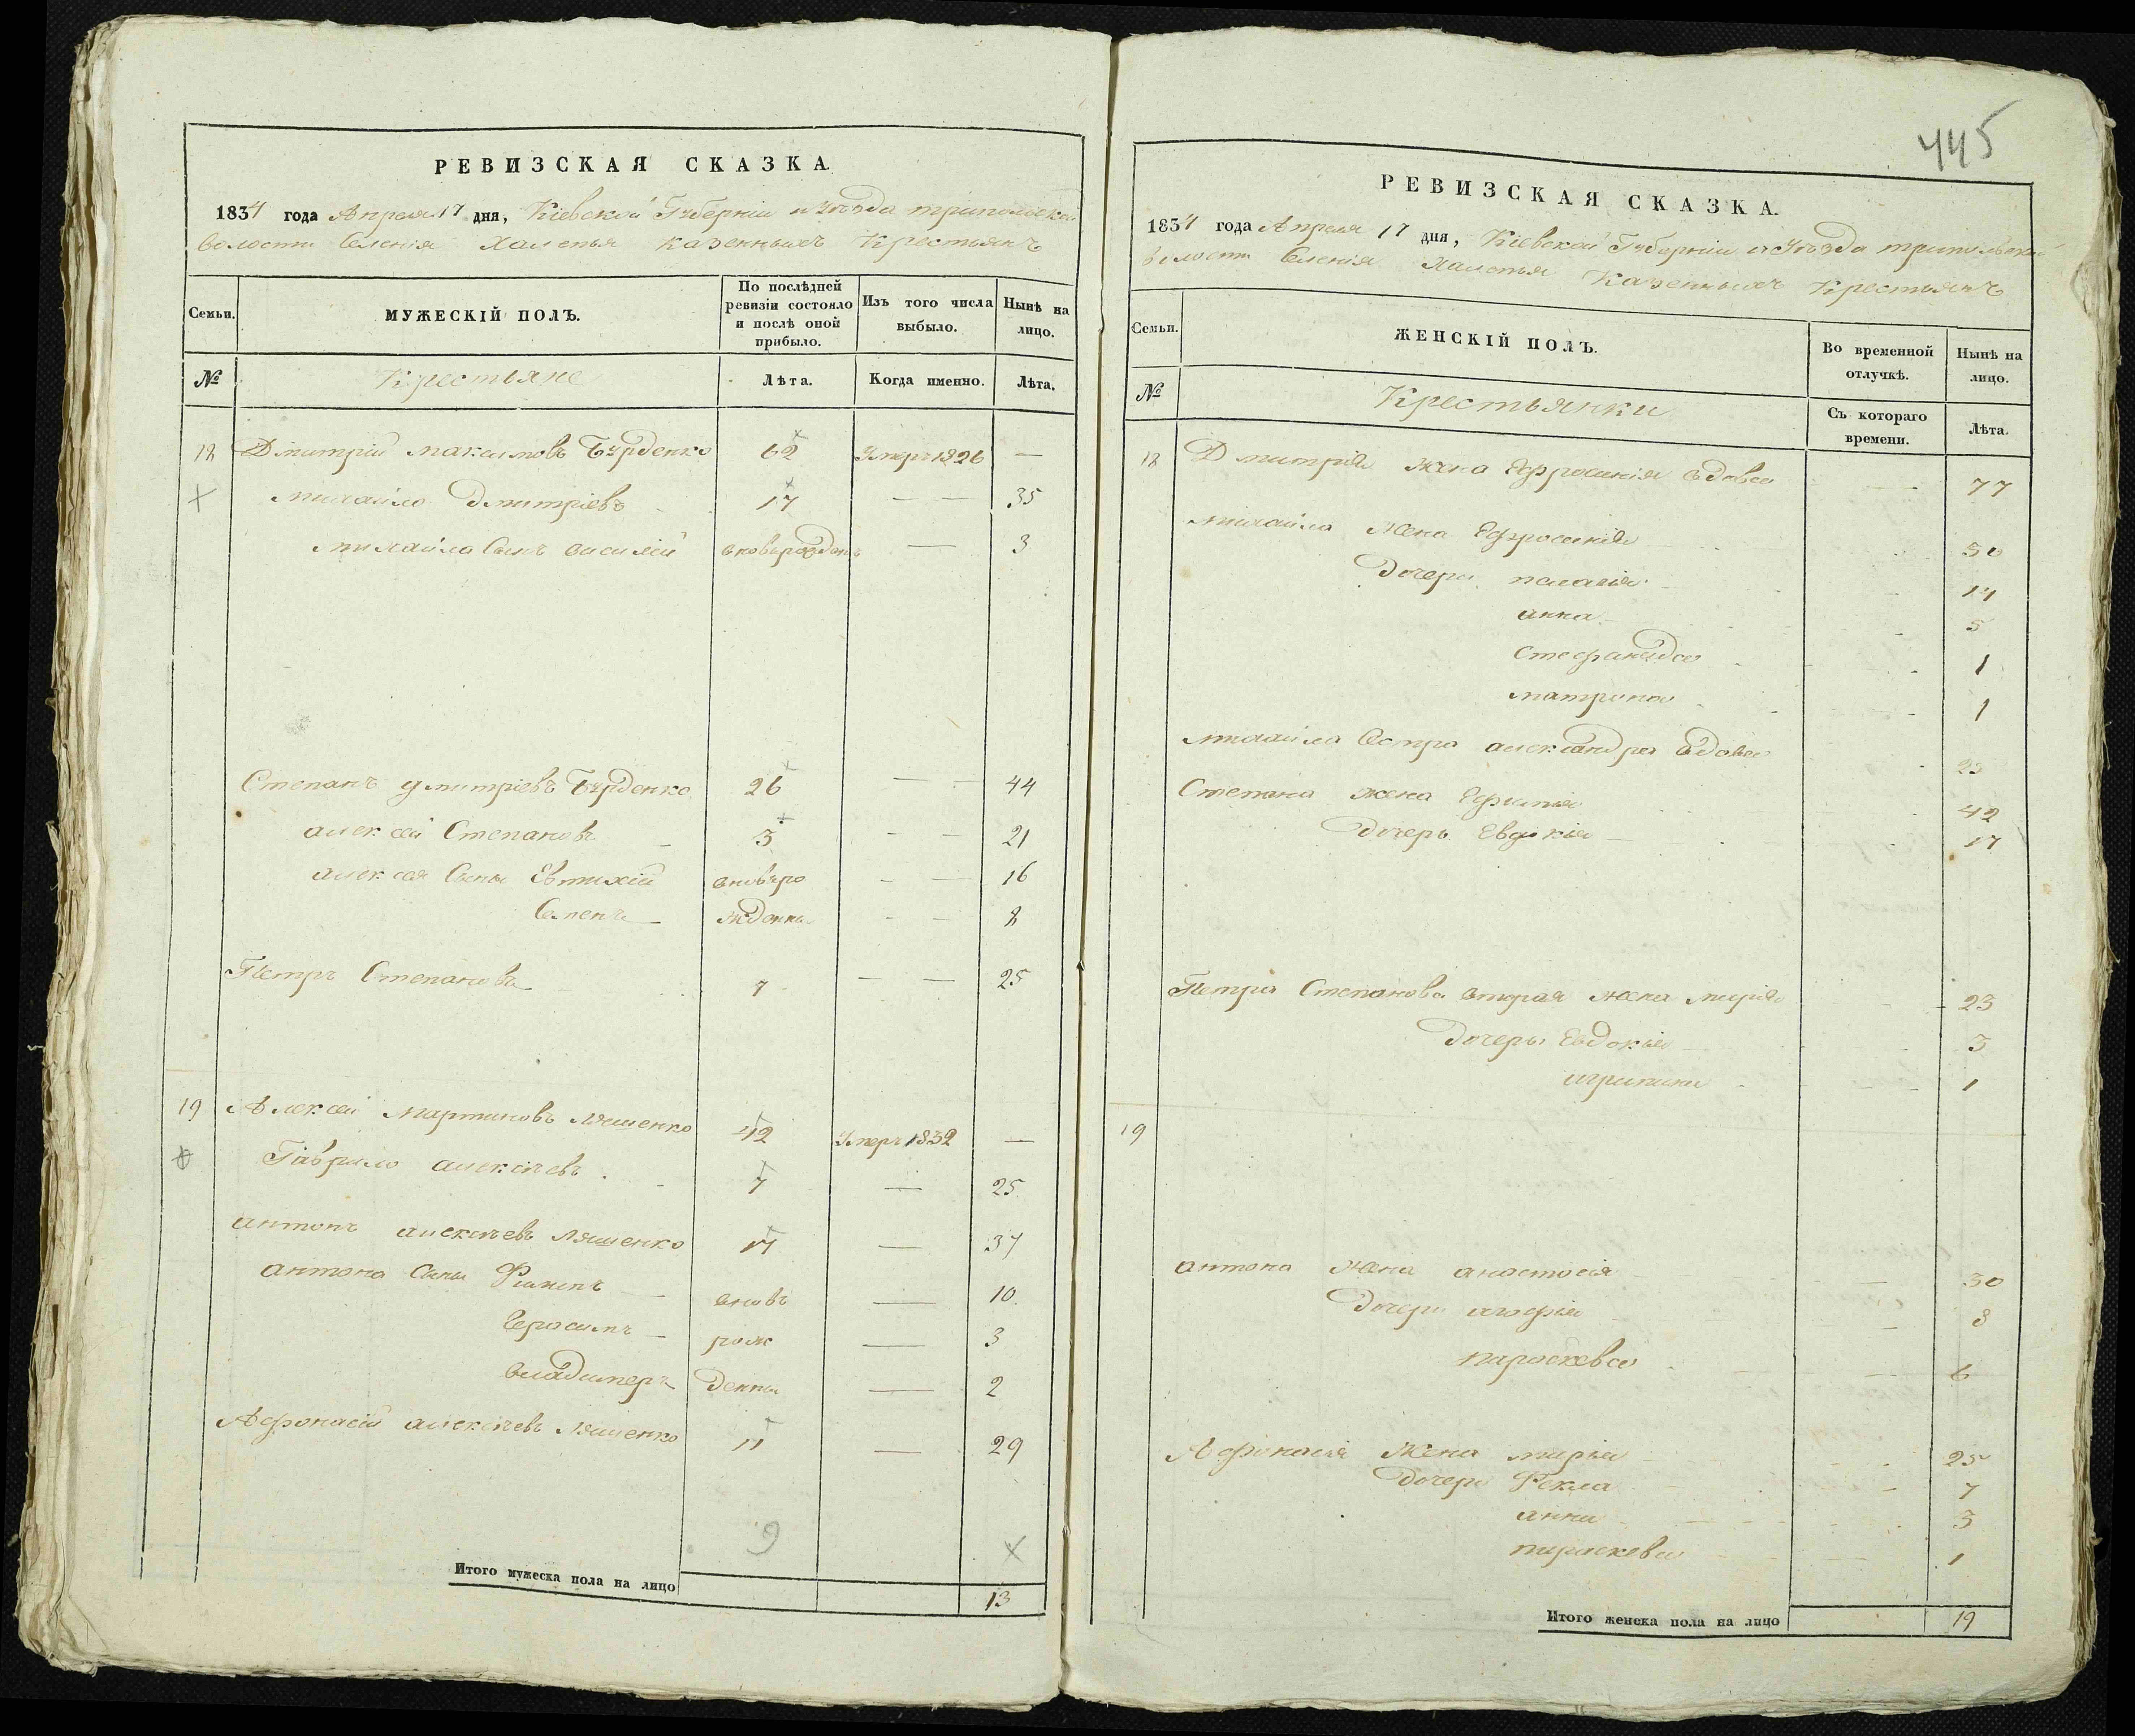 РЕВИЗСКАЯ СКАЗКА
1834 года Апреля 17 дня, Кіевской Губерніи и Уѣзда трипольской
волости Селенія Халепья казенныхъ Крестьянъ
Семьи.
МУЖЕСКІЙ ПОЛЪ.
По послѣдней ревизіи состояло и послѣ оной прибыло.
Изъ того числа выбыло.
Нынѣ на лицо.
№ Крестьяне Лѣта. Когда именно. Лѣта.
18 Дмитрій максимовъ Бурденко 62 Умеръ 1826 —
михайло Дмитріевъ 17 — 35
михайла Сынъ василій вновьрожденъ — 3
Степанъ дмитріевъ Бурденко 26 — 44
алексей Степановъ 3 — 21
алексея Сыны Евтихій вновьро — 16
Семенъ жденны — 8
Петръ Степановъ 7 — 25
19 Алексей мартиновъ Ляшенко 42 Умеръ 1832 —
Гаврило алексѣевъ 7 — 25
антонъ алексѣевъ Ляшенко 17 — 37
антона Сыны Филипъ вновь — 10
Герасимъ рож — 3
владимеръ денны — 2
Афонасій алексѣевъ Ляшенко 11 — 29
9
Итого мужеска пола на лицо 13
445
РЕВИЗСКАЯ СКАЗКА.
1834 года Апреля 17 дня, Кіевской Губерніи и Уѣзда трипольской
волости Селенія Халепья Казенныхъ Крестьянъ
Семьи.
ЖЕНСКІЙ ПОЛЪ.
Во временной отлучкѣ.
Нынѣ на лицо.
№ Крестьянки Съ котораго времени. Лѣта.
18 Дмитрія жена Ефросинія вдова — 77
михайла Жена Ефросинія 30
Дочери пелагія 14
анна 5
Стефанида 1
матрона 1
михайла Сестра александра вдова 23
Степана жена Ефимія 42
дочерь Евдокія 17
Петра Степанова вторая жена марія 23
Дочеры Евдокія 3
агрипина 1
19
антона Жена анастосія 30
Дочери агафія 8
параскева 6
Афонасія Жена марья 25
Дочери Фекла 7
анна 3
параскева 1
Итого женска пола на лицо 19